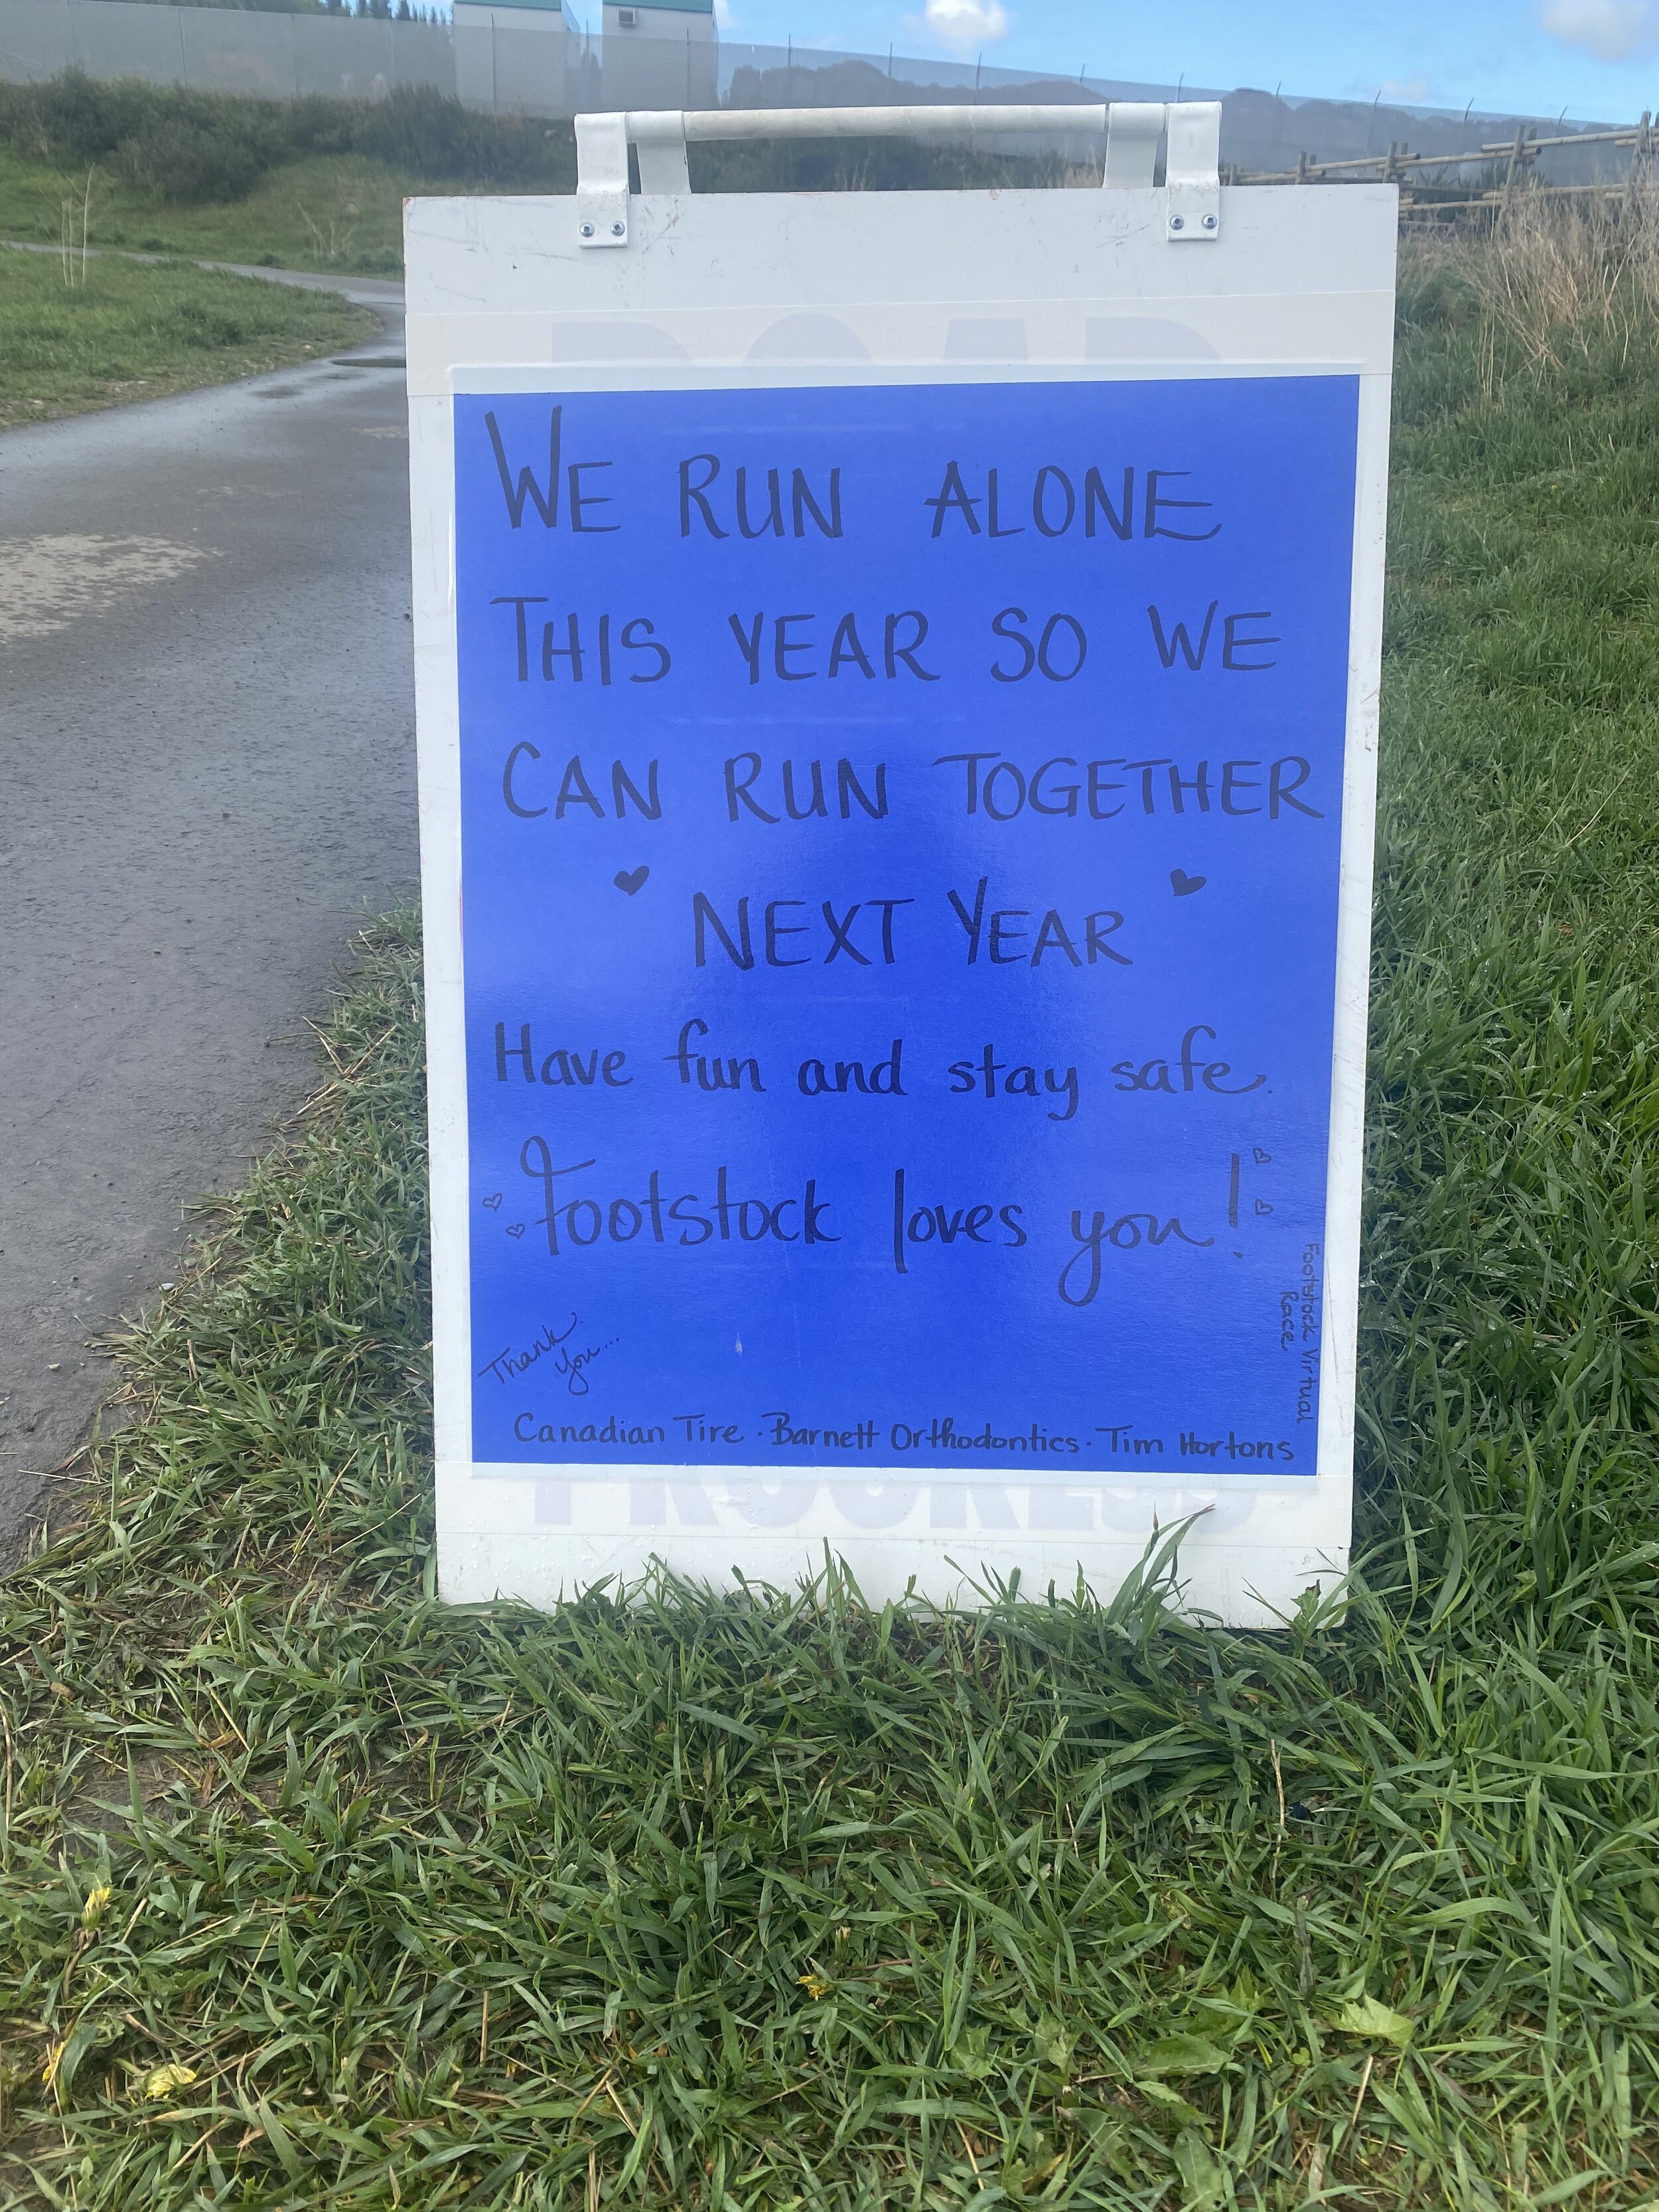 ROAD
WE RUN ALONE
THIS YEAR SO WE
CAN RUN TOGETHER
♥ NEXT YEAR ♥
Have fun and stay safe.
Footstock loves you!
Footstock Virtual
Race
Thank
you...
Canadian Tire · Barnett Orthodontics · Tim Hortons
PROGRESS